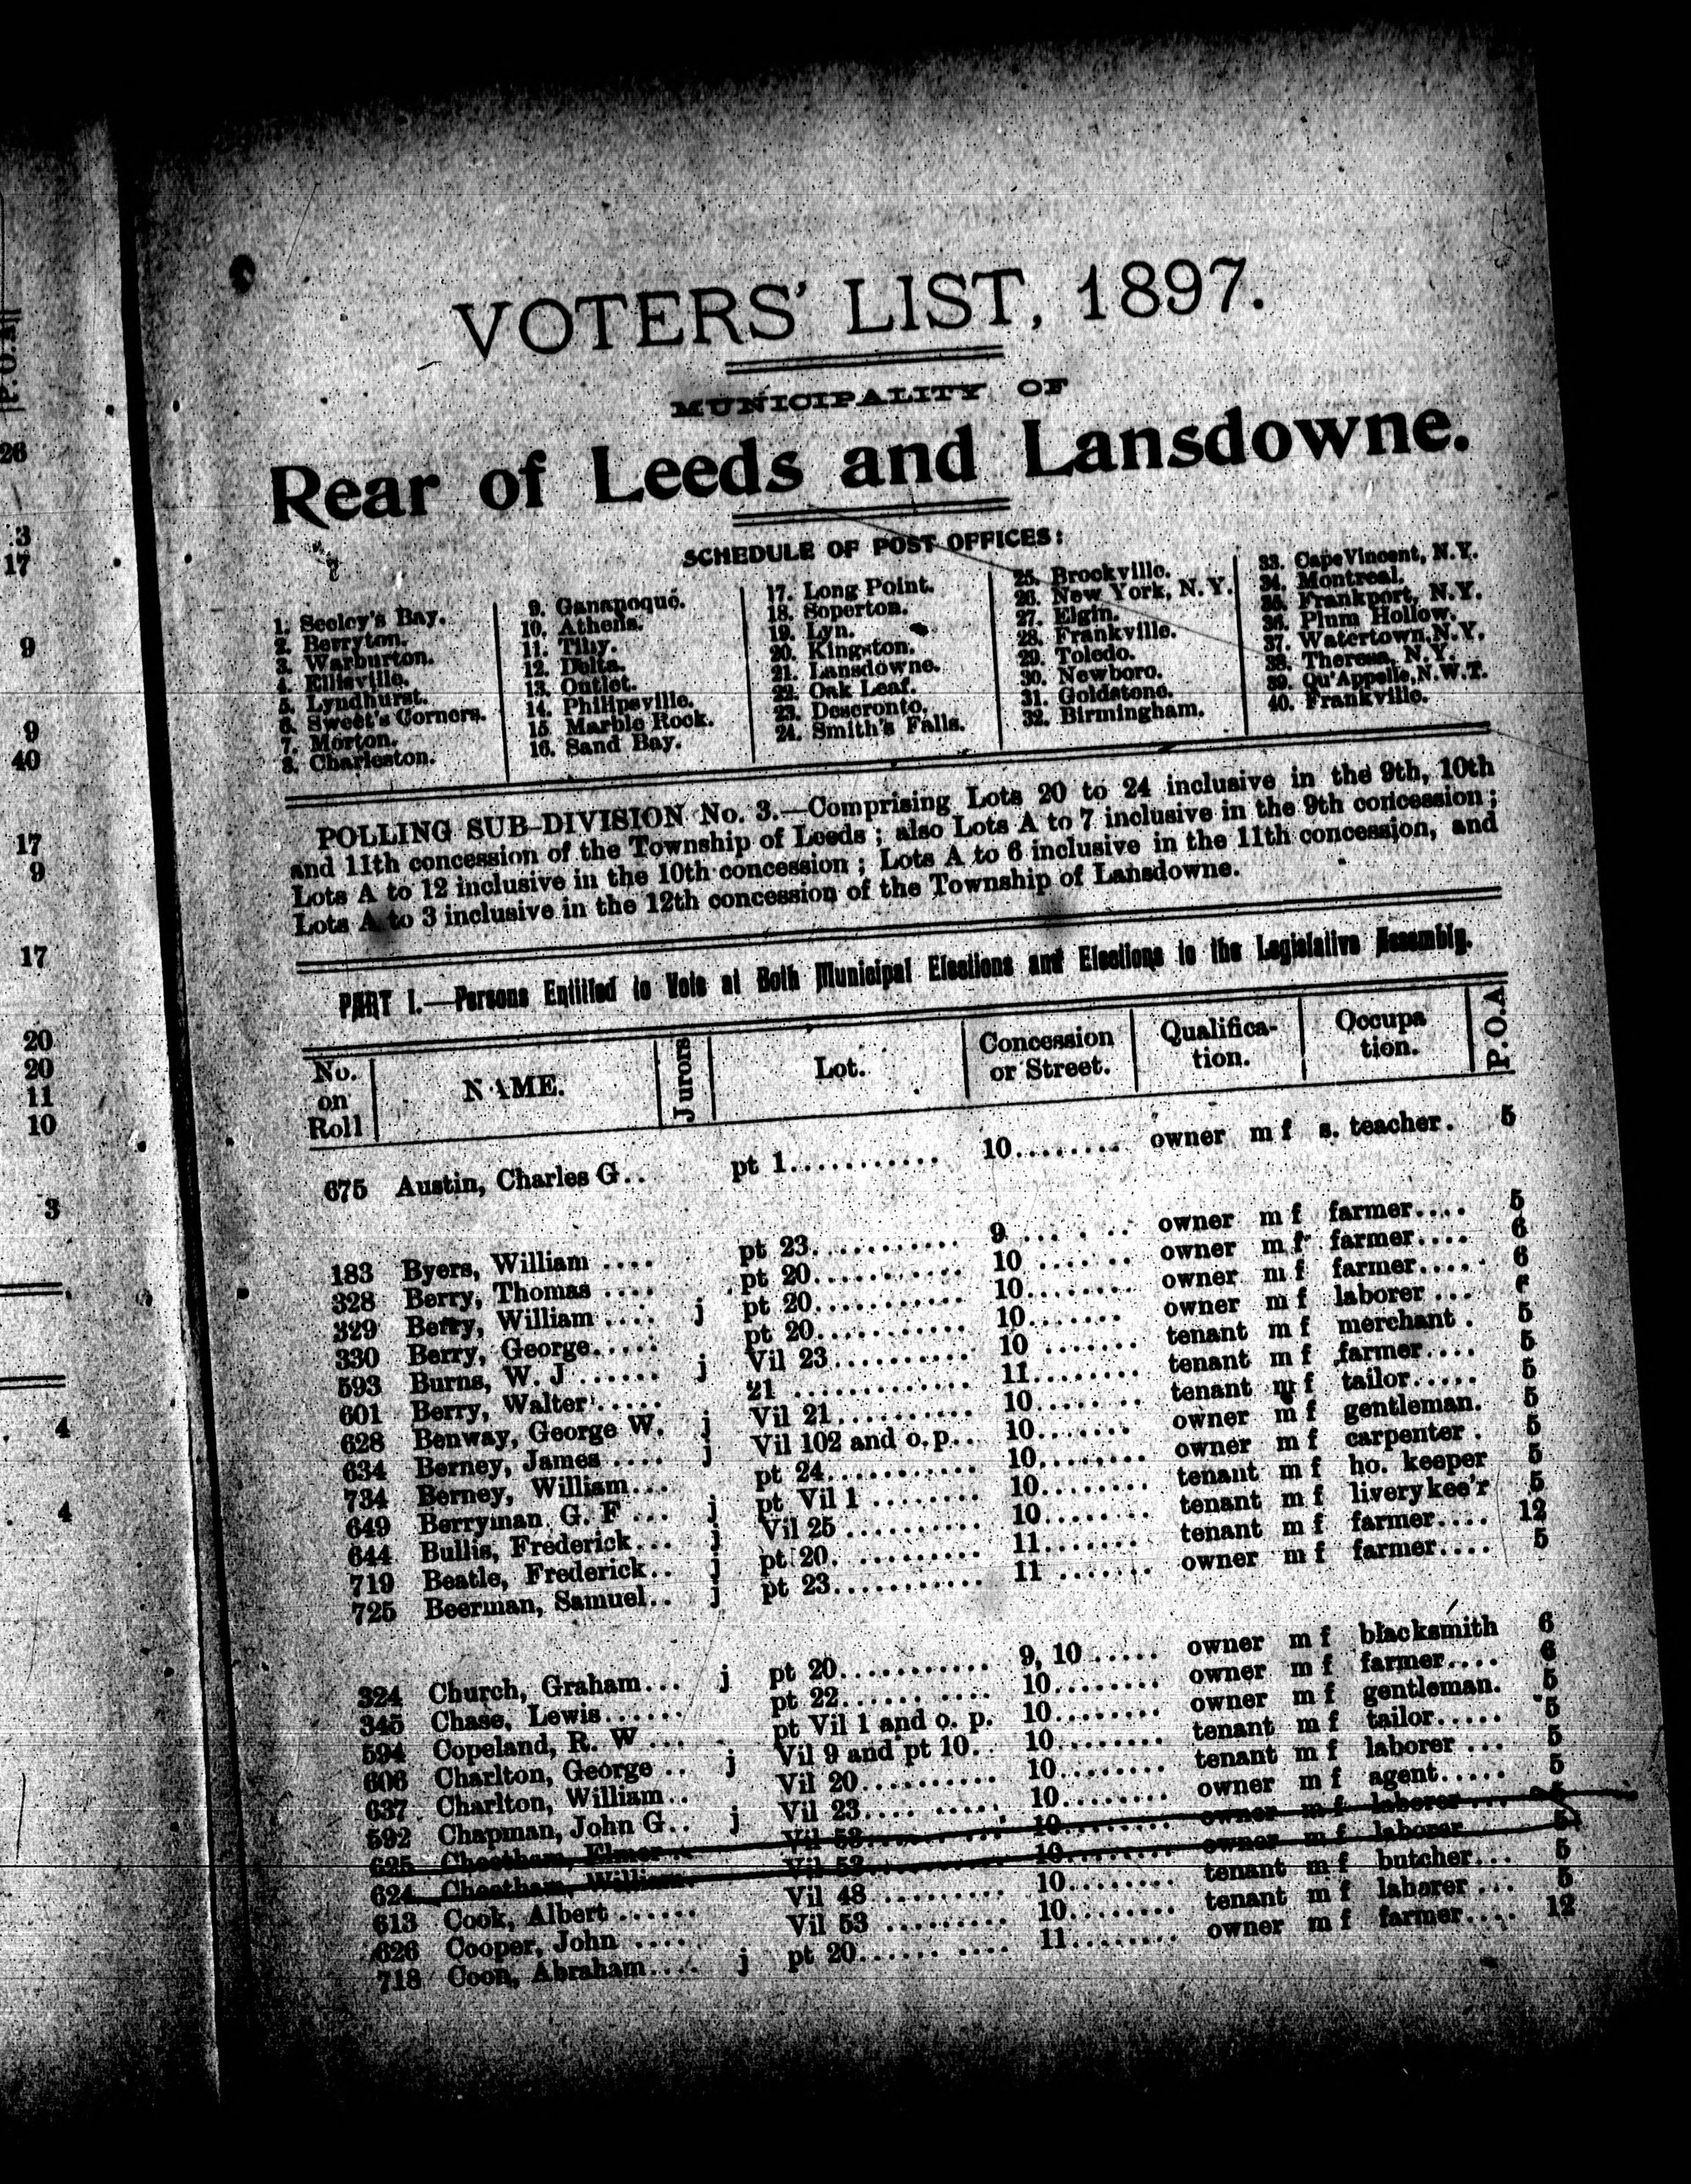 VOTERS' LIST, 1897.
MUNICIPALITY OF
Rear of Leeds and Lansdowne.
SCHEDULE OF POST OFFICES:
1. Seeley's Bay.
2. Berryton.
3. Warburton.
4. Ellisville.
5. Lyndhurst.
6. Sweet's Corners.
7. Morton.
8. Charleston.
9. Gananoque.
10. Athens.
11. Tilly.
12. Delta.
13. Outlet.
14. Philipsville.
15. Marble Rock.
16. Sand Bay.
17. Long Point.
18. Soperton.
19. Lyn.
20. Kingston.
21. Lansdowne.
22. Oak Leaf.
23. Deseronto.
24. Smith's Falls.
25. Brockville.
26. New York, N.Y.
27. Elgin.
28. Frankville.
29. Toledo.
30. Newboro.
31. Goldstone.
32. Birmingham.
33. Cape Vincent, N.Y.
34. Montreal.
35. Frankport, N.Y.
36. Plum Hollow.
37. Watertown, N.Y.
38. Theresa, N.Y.
39. Qu'Appelle, N.W.T.
40. Frankville.
POLLING SUB-DIVISION No. 3.—Comprising Lots 20 to 24 inclusive in the 9th, 10th
and 11th concession of the Township of Leeds; also Lots A to 7 inclusive in the 9th concession;
Lots A to 12 inclusive in the 10th concession; Lots A to 6 inclusive in the 11th concession, and
Lots A to 3 inclusive in the 12th concession of the Township of Lansdowne.
PART I.—Persons Entitled to Vote at Both Municipal Elections and Elections to the Legislative Assembly.
No. on Roll NAME. Jurors Lot. Concession or Street. Qualification. Occupation. P.O.A
675 Austin, Charles G.. pt 1........... 10........ owner m f s. teacher. 5
183 Byers, William .... pt 23........... 9 ... . .. owner m f farmer.... 5
328 Berry, Thomas .... pt 20........... 10 ...... owner m f farmer.... 6
329 Berry, William .... j pt 20........... 10........ owner m f farmer..... 6
330 Berry, George..... pt 20........... 10....... owner m f laborer ...
593 Burns, W. J ...... j Vil 23.......... 10 ....... tenant m f merchant . 5
601 Berry, Walter ..... 21 ............. 11........ tenant m f farmer.... 5
628 Benway, George W. j Vil 21.......... 10........ tenant m f tailor..... 5
634 Berney, James .... j Vil 102 and o.p.. 10....... owner m f gentleman. 5
734 Berney, William... pt 24........... 10........ owner m f carpenter . 5
649 Berryman. G. F ... j pt Vil 1 ........ 10........ tenant m f ho. keeper 5
644 Bullis, Frederick... j Vil 25 .......... 10........ tenant m f livery kee'r 5
719 Beatle, Frederick.. j pt 20. .......... 11....... tenant m f farmer.... 12
725 Beerman, Samuel.. j pt 23........... 11 ....... owner m f farmer.... 5
324 Church, Graham... j pt 20........... 9, 10 ..... owner m f blacksmith 6
345 Chase, Lewis...... pt 22...... .... 10........ owner m f farmer.... 6
594 Copeland, R. W ... pt Vil 1 and o. p. 10........ owner m f gentleman. 5
606 Charlton, George .. j Vil 9 and pt 10.. 10........ tenant m f tailor..... 5
637 Charlton, William.. Vil 20.......... 10........ tenant m f laborer ... 5
592 Chapman, John G.. j Vil 23.... ..... 10........ owner m f agent..... 5
625 Cheetham, Elmer... Vil 53.......... 10........ owner m f laborer.... 5
624 Cheetham, William. Vil 52.......... 10........ owner m f laborer.... 5
613 Cook, Albert ...... Vil 48 ......... 10........ tenant m f butcher... 5
626 Cooper, John .... Vil 53 ......... 10........ tenant m f laborer ... 5
718 Coon, Abraham.... j pt 20...... .... 11........ owner m f farmer.... 12
P.O.A
26
3
17
9
9
40
17
9
17
20
20
11
10
3
4
4